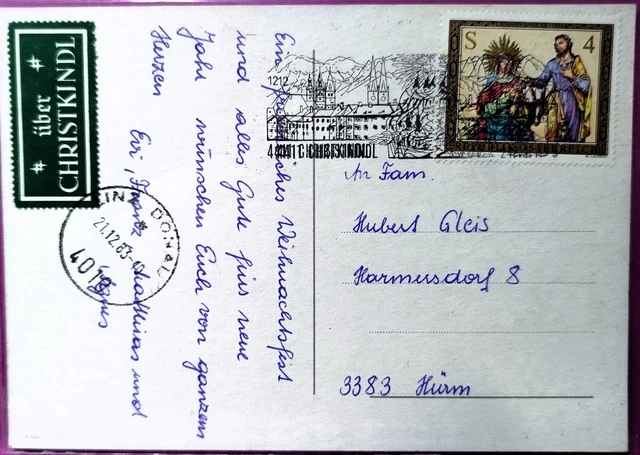 über
CHRISTKINDL
Ein friedliches Weihnachtsfest
und alles Gute fürs neue
Jahr wünschen Euch von ganzem
Herzen
Evi, Franz, Matthias und
Agnes
LINZ DONAU
21.12.83
4010
1212
4411 CHRISTKINDL
S 4
REPUBLIK ÖSTERREICH
An Fam.
Hubert Gleis
Harmersdorf 8
3383 Hürm